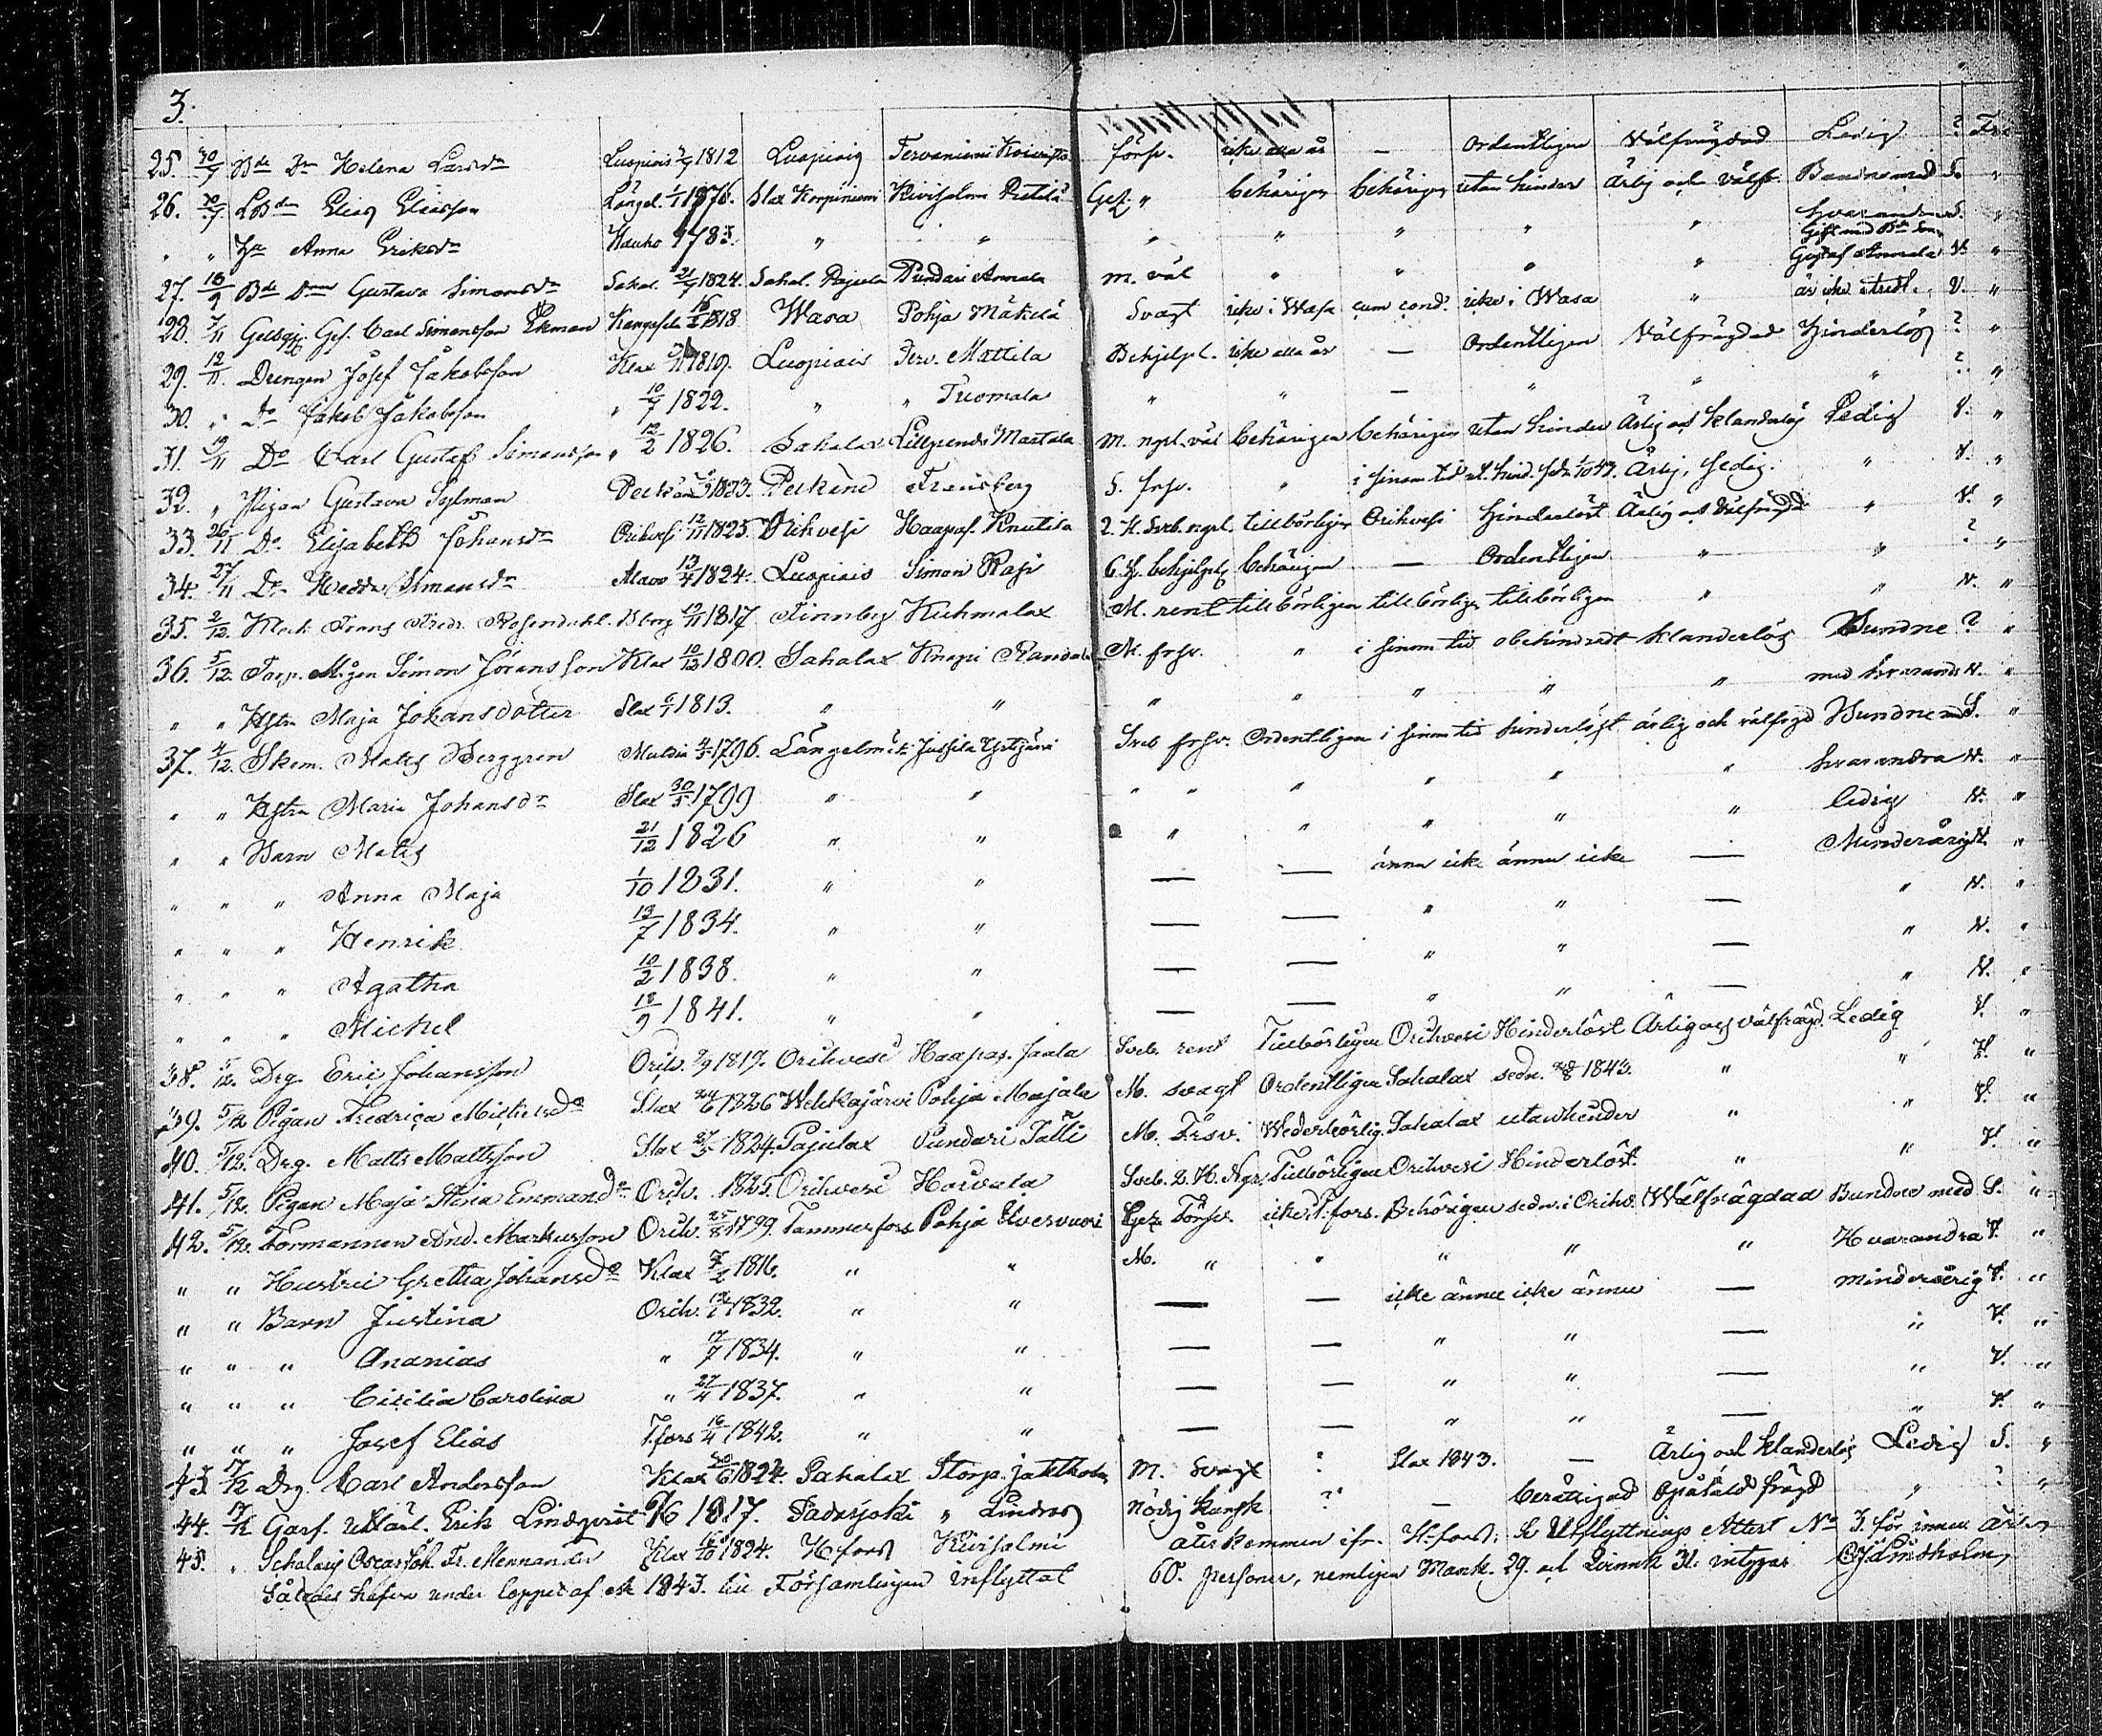 3.
25. 30/9 Bde Dr Helena Larsdr Luopiois 2/9 1812 Luopiois Tervaniemi försv. icke alla år — Ordentligen Välfrägdad Ledig ?
26. 30/9 Elias Eliasson Längel. 1/1 Slax Korpiniemi Kivisalmi Puttila Gef. " behörigen behörigen utan hinder Ärlig och välfr. Bundne med S. "
" " Anna Eriksdr Kauho 178 " " " " " " " hvarandra S. "
27. 18/9 Bde Gustava Simonsdr Sahal. 21/7 1824. Sahal. Pajula Pundari Annala m. väl " " " " Gift med Gustaf Annala V. "
28. 7/11 Ges. Carl Simonsson Ekman Kangasala 1818 Wasa Pohja Mäkelä Svagt icke i Wasa cum cond. icke i Wasa " är icke V. "
29. 12/11 Drengen Josef Jakobsson Klax 1819. Luopiois Terv. Mattila Behjelpl. icke alla år — Ordentligen Välfrägdad Hinderlös ? "
30. " Do Jakob Jakobsson " 10/7 1822. " " Tuomala " " — " " " ? "
31. 19/11 Do Carl Gustaf Simonsson " 12/2 1826. Sahalax Lillgendi Mattala m. ngl. väl behörigen behörigen utan hinder Ärlig och klanderlös Ledig V. "
32. " Pigan Gustava Sylman 1823. Pelkäne Fransberg S. frsv. " i sinom tid ut. hind. Ärlig, sedig. " V. "
33. 26/11 Do Elisabeth Johansdr Orihvesi 12/11 1825. Orihvesi Haapas. Knutila 2. H. Sveb. ngrl. tillbörligen Orihvesi hinderlöst Ärlig och välfrägd " V. "
34. 27/11 Do Hedda Simonsdr 13/4 1824. Luopiois Simon Raji 6. H. behjelpl. behörigen — Ordentligen " " ? "
35. 2/12. Frans Rosendahl. Bborg 1817 Tinnby Kuhmalax M. rent tillbörligen tillbörligen tillbörligen " " V. "
36. 5/12. Torp. Mågen Simon Jöransson Klax 10/12 1800. Sahalax Knapi Randala M. frsv. " i sinom tid obehindradt klanderlös Bundne ? "
" " Hstru Maja Johansdotter Slax 6/1 1813. " " " " " " " med hvarandr V. "
37. 4/12. Skom. Mats Berggren Multia 4/5 1796. Längelmäki Jussila Ystijärvi Sveb frsv. Ordentligen i sinom tid hinderlöst ärlig och välfrgd Bundne med S. "
" " Hstru Maria Johansdr Slax 30/5 1799 " " " " " " " " hvarandra V. "
" " Barn Mats 21/12 1826 " " " " " " " ledig V. "
" " " Anna Maja 1/10 1831. " " — — ännu icke ännu icke — Minderårig V. "
" " " Henrik 13/7 1834. " " — — " " — " V. "
" " " Agatha 10/2 1838. " " — — " " — " V. "
" " " Michel 18/9 1841. " " — — " " — " V. "
38. 5/12. Drg. Eric Johansson Orih. 9/9 1817. Orihvesi Haapas. Jaala Sveb. rent Tillbörligen Orihvesi Hinderlöst Ärlig och välfrägd. Ledig V. "
39. 5/12 Pigan Fredrica Michelsdr Slax 24/6 1826 Wehkajärvi Pohja Majala M. svagt Ordentligen Sahalax sedn. 1843. " " V. "
40. 5/12. Drg. Matts Mattsson Slax 1824. Pajulax Pundari Tålli M. Frsv. Wederbörlig. Sahalax utan hinder " " V. "
41. 5/12. Pigan Maja Stina Emmandr Orih. 1825. Orihvesi Horvala Sveb. 2. H. Ngr. Tillbörligen Orihvesi Hinderlöst. " " V. "
42. 5/12. Formannen And. Markusson Orih. 25/8 1799. Tammerfors Pohja Ulvesvuori Försv. icke i T.fors. Behörigen sedn. i Orihv. Wälfrägdad Bundne med S. "
" " Hustru Gretha Johansdr Klax 7/2 1816. " " M. " " " " " Hvarandra V. "
" " Barn Justina Orih. 1832. " " — — icke ännu icke ännu — minderårig V. "
" " " Ananias " 17/7 1834. " " — — " " — " V. "
" " " Cicilia Carolina " 27/4 1837. " " — — " " — " V. "
" " " Josef Elias T.fors 16/4 1842. " " — — " " — " V. "
43. 17/12 Drg Carl Andersson Klax 1824. Sahalax Storp. M. Svagt ? Slax 1843. — Ärlig och klanderlös Ledig S. "
44. 17/12 Garf. Erik Lindqvist 1817. Padasjoki " Lindroos nödig kunsk ? — berättigad opåtald frägd " ? "
45. " Scholaris Oscar Joh. Fr. Mennander Klax 16/10 1824. Hfors Kivisalmi återkommen ifr. H-fors, Utflyttnings Attest No 3. för innev. år
Således hafva under loppet af år 1843. till Församlingen inflyttat 60. personer, nemligen Mank. 29. och Qvinnk 31. intygar Lindholm